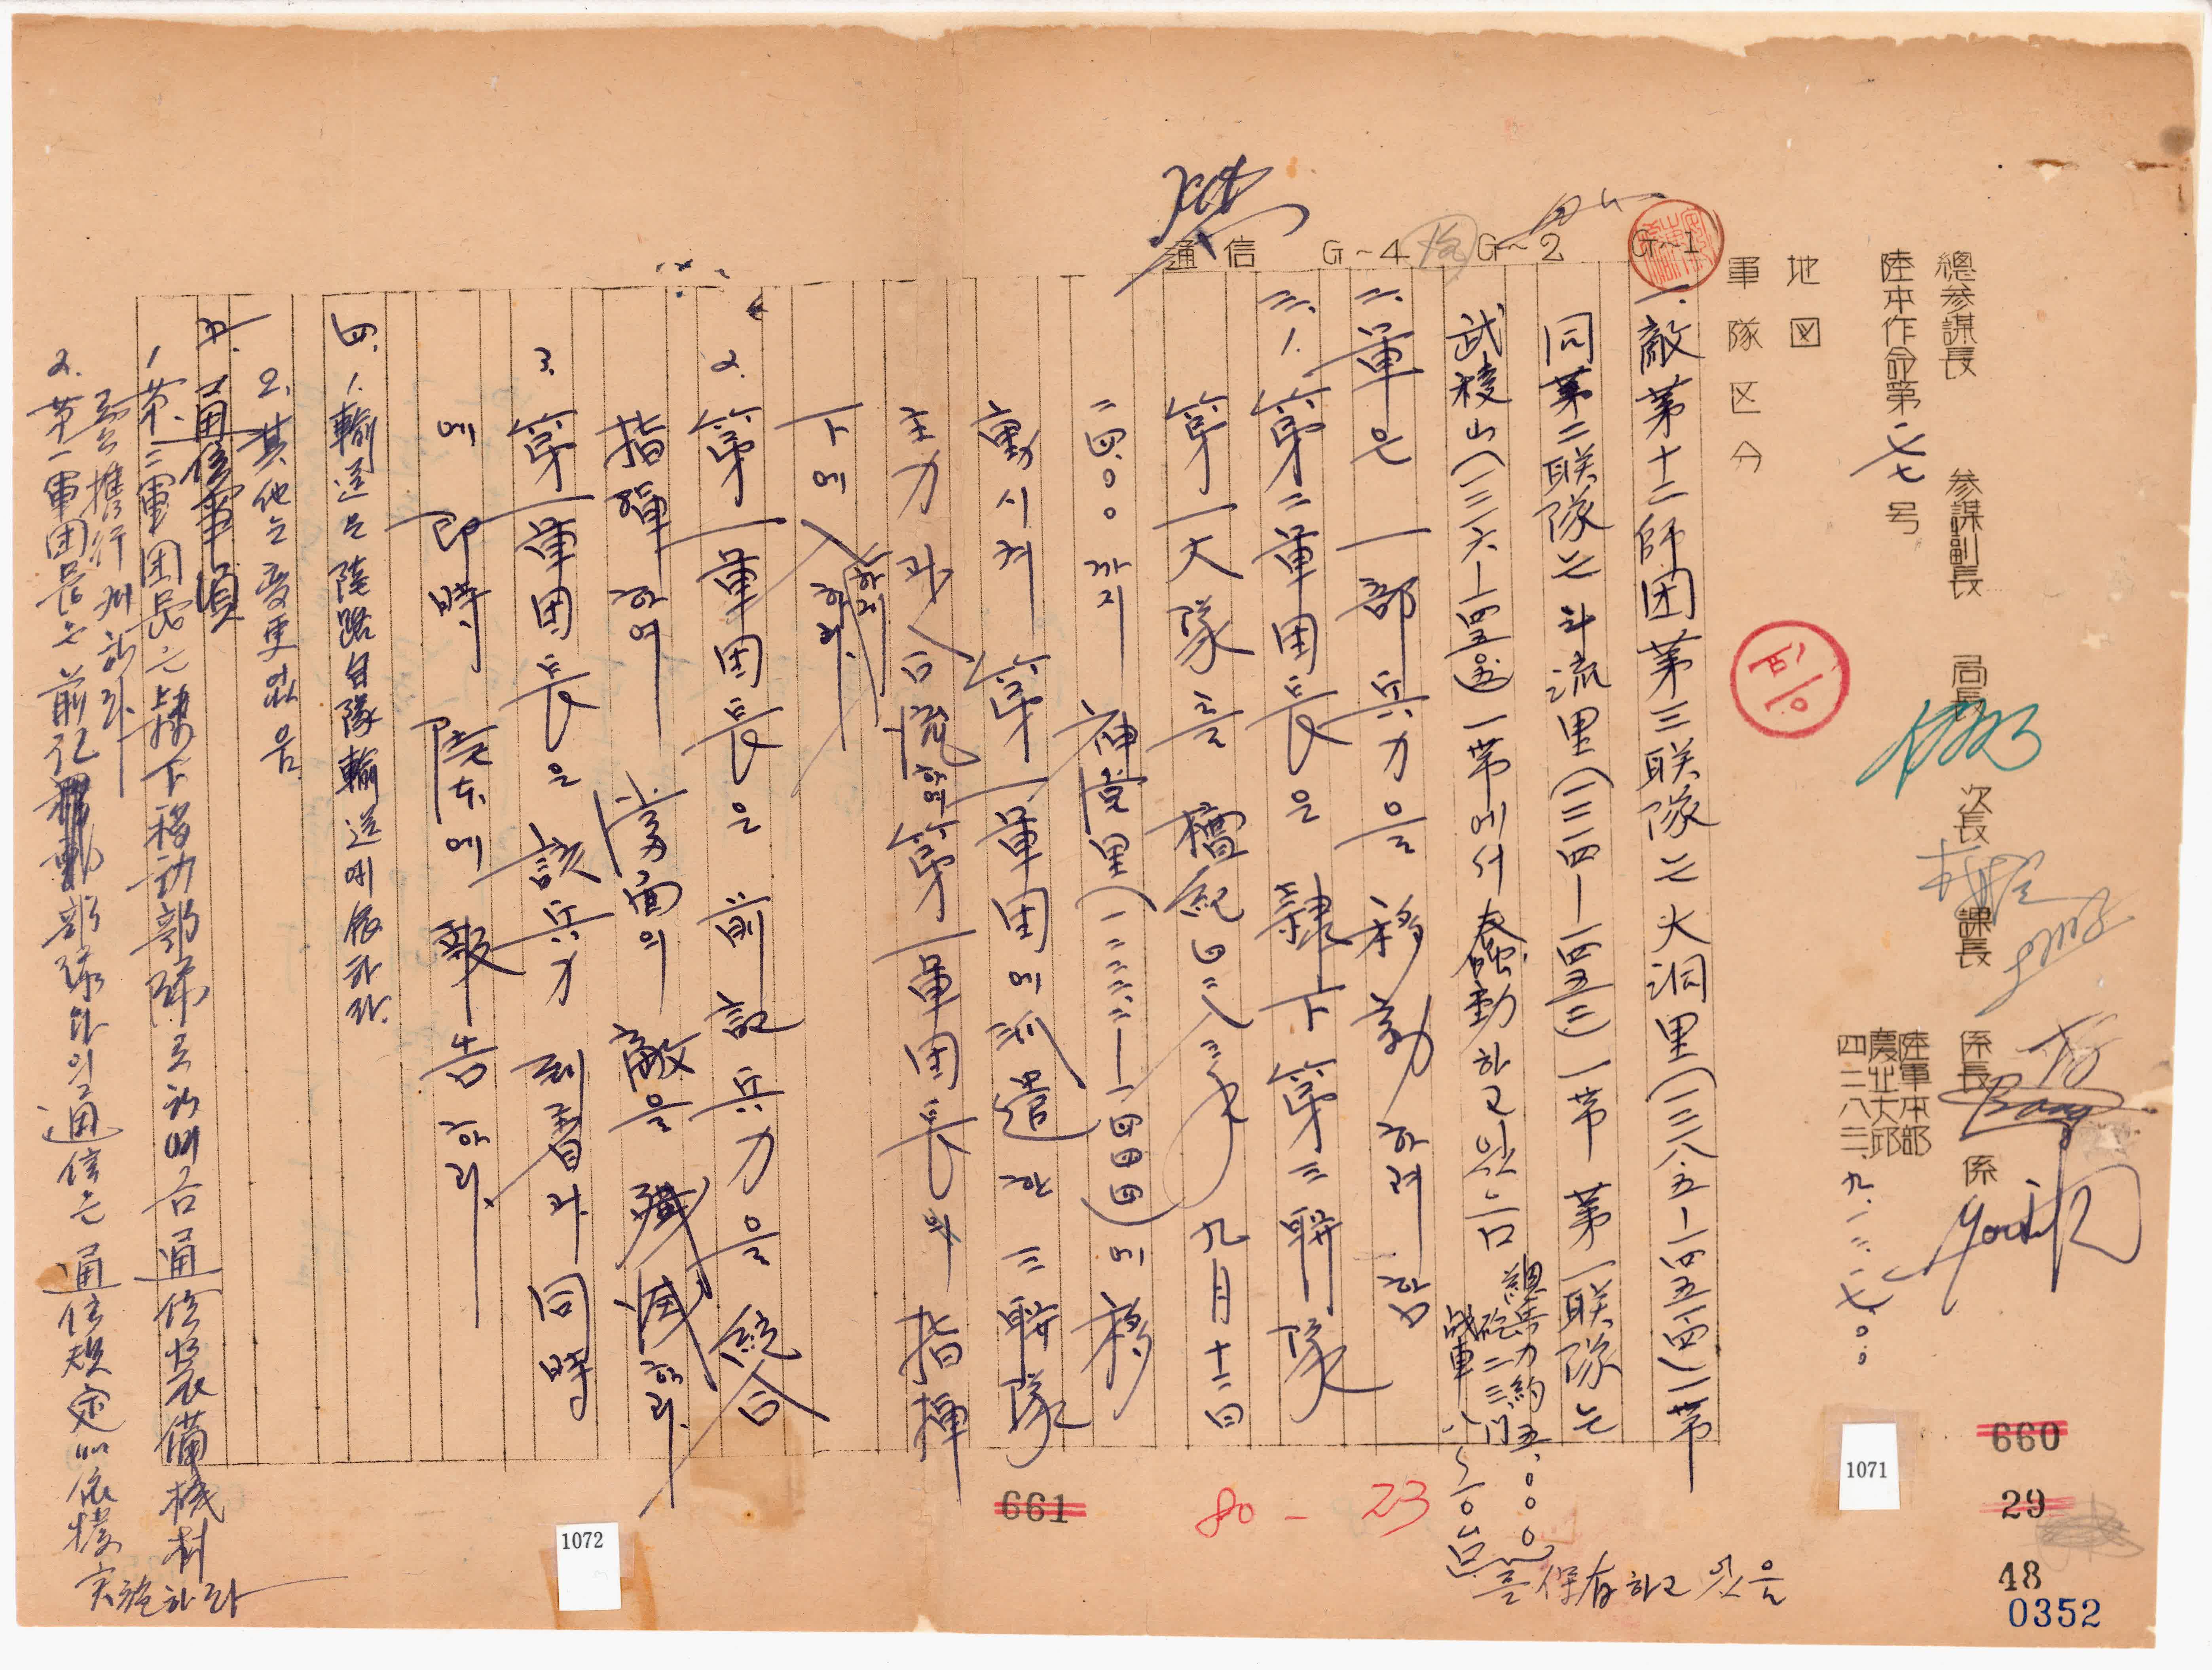 總参謀長 参謀副長 局長 次長 課長 係長 係
陸本作命第一七七号
陸軍本部
慶北大邱
四二八三.九.一二.一七.○○
地図
軍隊区分
G~1
G~2
G~4
通信
一. 敵第十二師団第三联隊는 大洞里(一三八.五—一四五一四)一帯
同第二联隊는 斗流里(一三一四—一四五三)一帯 第一联隊는
武稜山(一三六—一四五五)一帯에서 蠢動하고 있음
總兵力約五.○○○
砲二三門
战車八~一○台를 保有하고 있음
二. 軍은 一部兵力을 移動하려 함
三. 1. 第二軍团長은 隷下 第三聯隊
第一大隊를 檀紀四二八三年 九月十三日
二四.○○까지 神堂里(一二三三—一四四四)에 移
動시켜 第一軍团에 派遣한 三聯隊
主力과 合流하여 第一軍团長의 指揮
下에 하라.
2. 第一軍团長은 前記兵力을 統合
指揮하여 當面의 敵을 殲滅하라.
3. 第一軍团長은 該兵力 到着과 同時
에 即時 陸本에 報告하라.
四. 1. 輸送은 陸路自隊輸送에 依하라.
2. 其他는 変更 없음.
五. 通信事項
1. 第二軍团長는 隷下移动部隊로 하여금 通信装備機材
를 携行케 하라.
2. 第一軍团長는 前記 部隊와의 通信은 通信規定에 依據
実施하라
660
29
48
0352
1071
661
80-23
1072